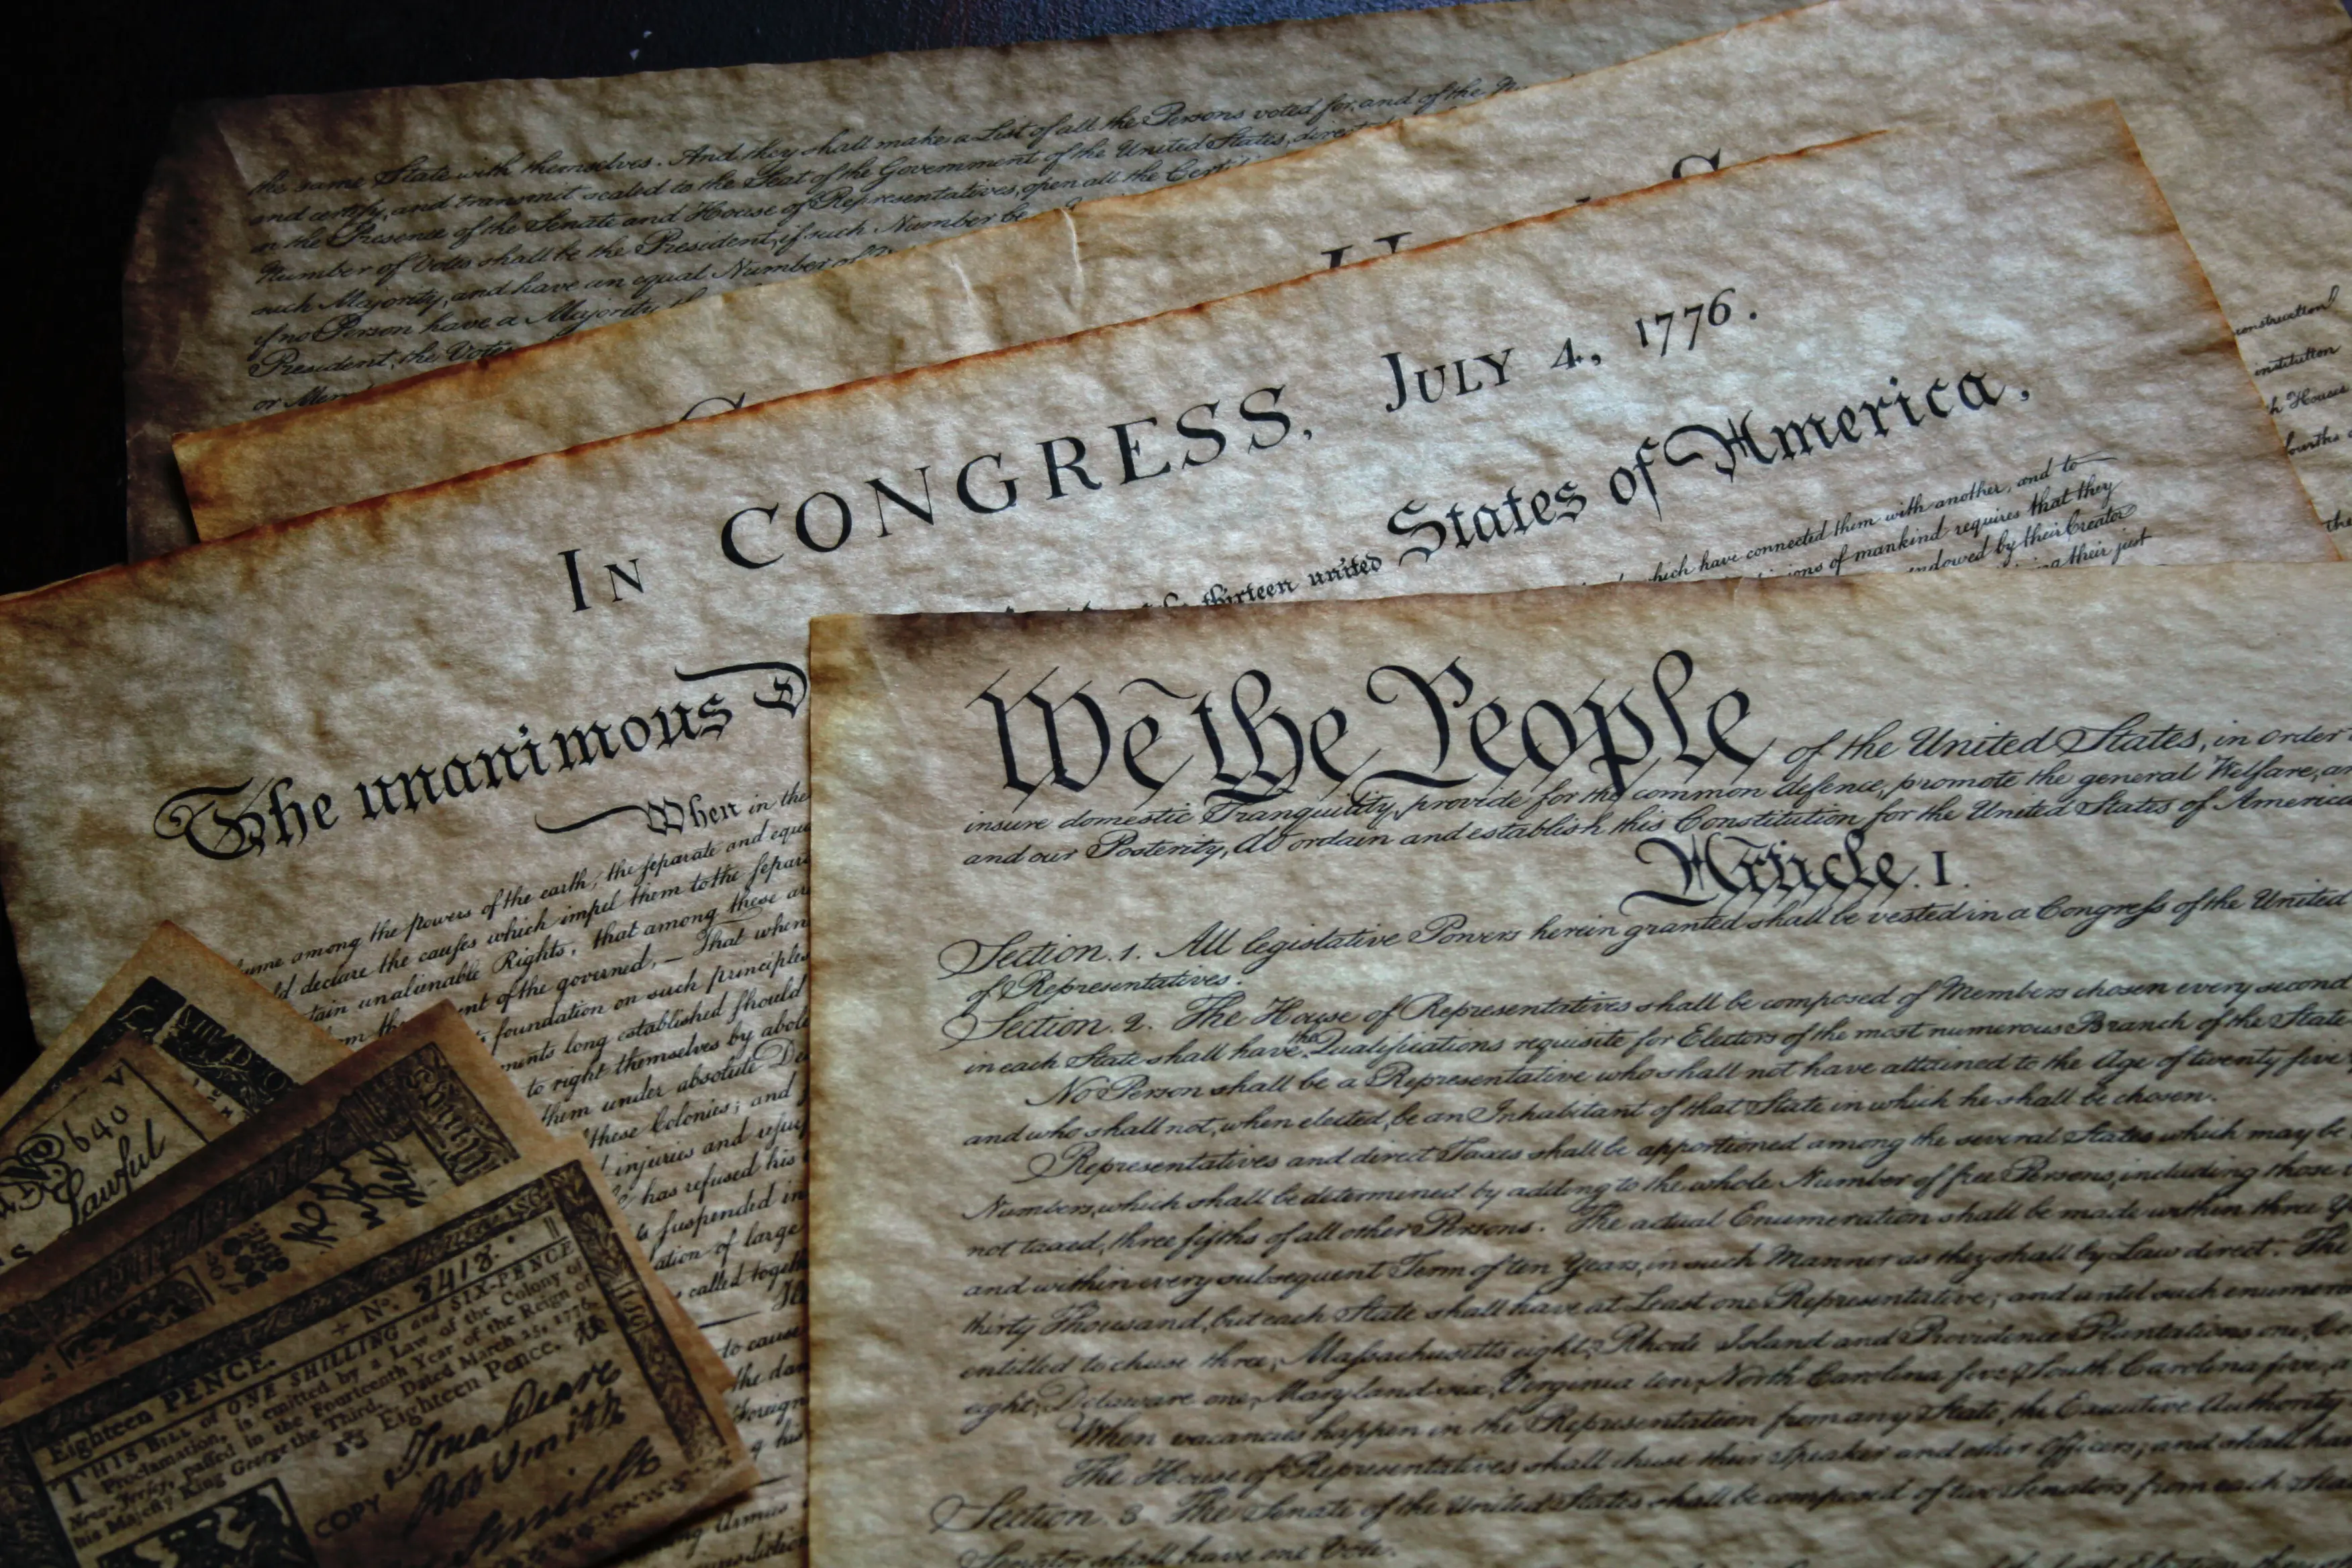 the same State with themselves. And they shall make a List of all the Persons voted for, and of the
and certify, and transmit sealed to the Seat of the Government of the United States, direct
in the Presence of the Senate and House of Representatives, open all the Certi
Number of Votes shall be the President, if such Number be
such Majority, and have an equal Number of
if no Person have a Majority
President, the Votes
or
In CONGRESS, July 4, 1776.
The unanimous D
thirteen united States of America,
When in the
hich have connected them with another, and to
ions of mankind requires that they
ndowed by their Creator
their just
among the powers of the earth, the separate and equa
ld declare the causes which impel them to the separa
tain unalienable Rights, that among these are
nt of the governed, — That when
foundation on such principles
ments long established should
to right themselves by abol
them under absolute De
these Colonies; and
injuries and usur
has refused his
suspended in
ation of large
called togeth
to cause
the dan
Foreign
nstruction
institution
h Houses
fourths
the
We the People of the United States, in order
insure domestic Tranquility, provide for the common defence, promote the general Welfare, an
and our Posterity, do ordain and establish this Constitution for the United States of America
Article. I.
Section. 1. All legislative Powers herein granted shall be vested in a Congress of the United
of Representatives.
Section. 2. The House of Representatives shall be composed of Members chosen every second
in each State shall have the Qualifications requisite for Electors of the most numerous Branch of the State
No Person shall be a Representative who shall not have attained to the Age of twenty five
and who shall not, when elected, be an Inhabitant of that State in which he shall be chosen.
Representatives and direct Taxes shall be apportioned among the several States which may be
Numbers, which shall be determined by adding to the whole Number of free Persons, including those
not taxed, three fifths of all other Persons. The actual Enumeration shall be made within three Y
and within every subsequent Term of ten Years, in such Manner as they shall by Law direct. The
thirty Thousand, but each State shall have at Least one Representative; and until such enumer
entitled to chuse three, Massachusetts eight, Rhode Island and Providence Plantations one, Co
eight, Delaware one, Maryland six, Virginia ten, North Carolina five, South Carolina five, a
When vacancies happen in the Representation from any State, the Executive Authority
The House of Representatives shall chuse their Speaker and other Officers; and shall hav
Section. 3. The Senate of the United States shall be composed of two Senators from each State
Senator shall have one Vote.
640
Lawful
No. 2413.
Eighteen PENCE.
THIS BILL of ONE SHILLING and SIX-PENCE
Proclamation, is emitted by a Law of the Colony of
New-Jersey, passed in the Fourteenth Year of the Reign of
his Majesty King George the Third. Dated March 25, 1776.
Eighteen Pence.
Smith
COPY